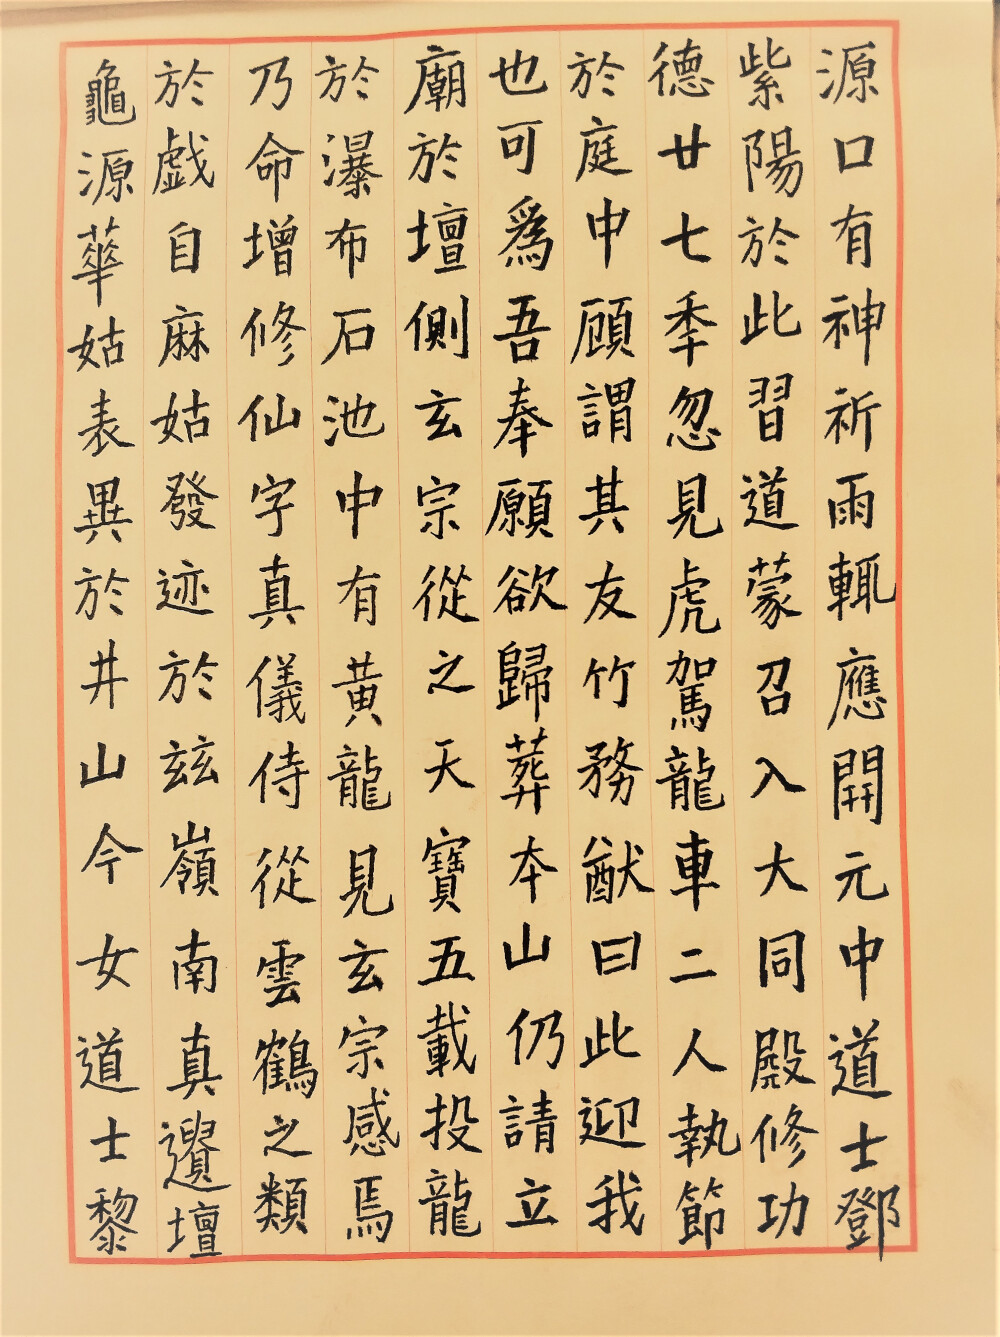 源口有神祈雨輒應開元中道士鄧
紫陽於此習道蒙召入大同殿修功
德廿七季忽見虎駕龍車二人執節
於庭中顧謂其友竹務猷曰此迎我
也可爲吾奉願欲歸葬本山仍請立
廟於壇側玄宗從之天寶五載投龍
於瀑布石池中有黃龍見玄宗感焉
乃命增修仙字真儀侍從雲鶴之類
於戲自麻姑發迹於茲嶺南真遺壇
龜源華姑表異於井山今女道士黎